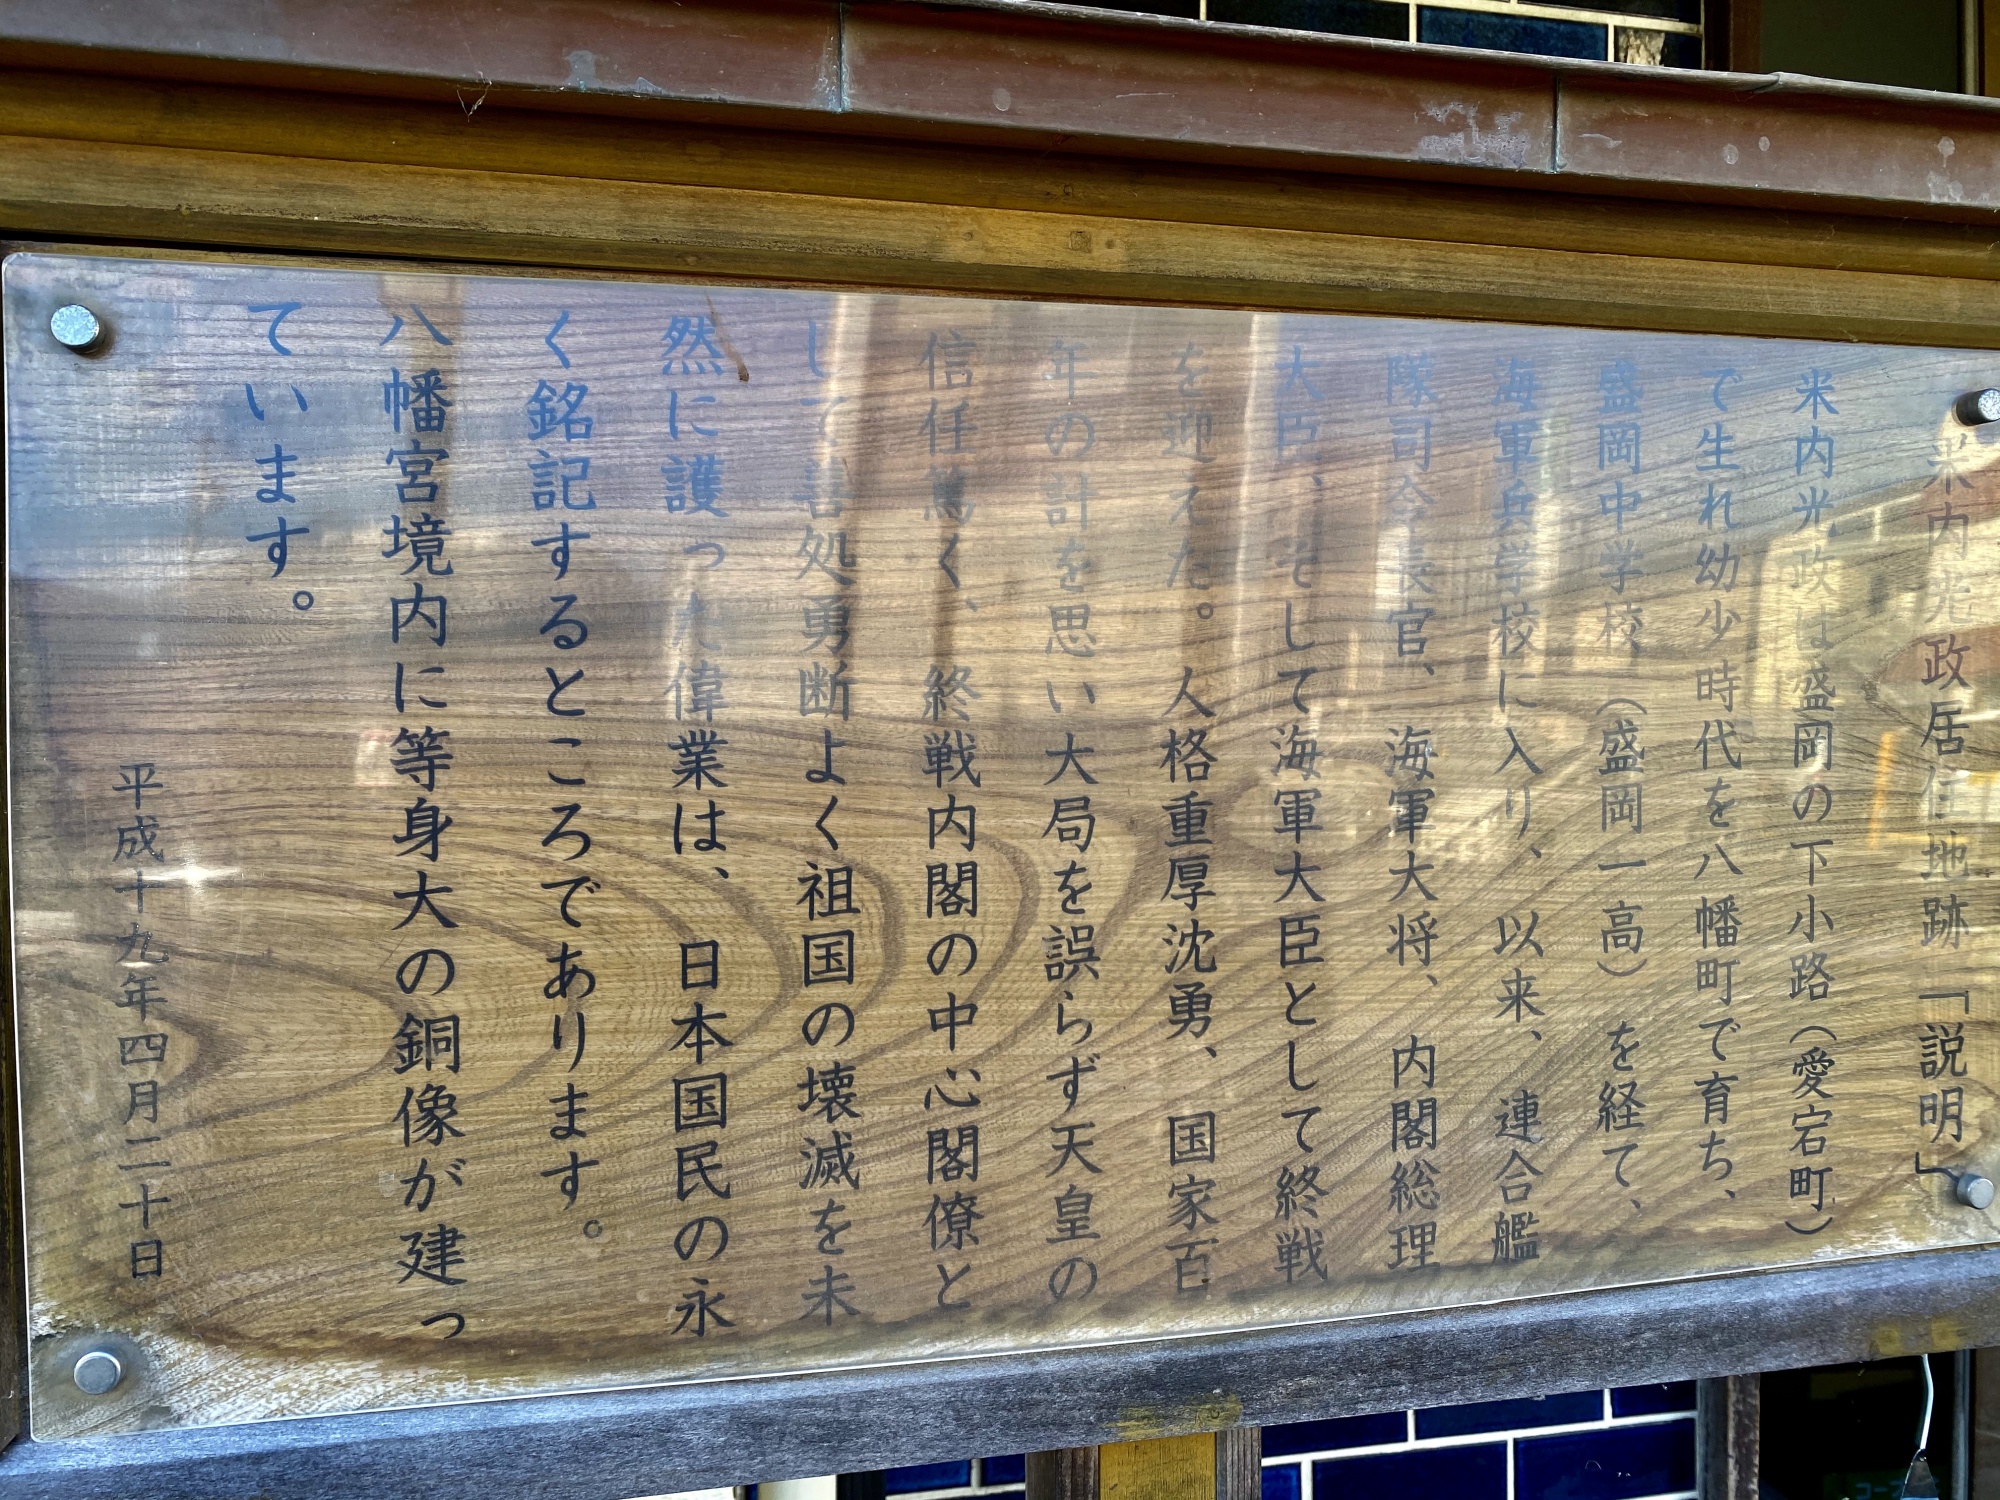 米内光政居住地跡「説明」
米内光政は盛岡の下小路（愛宕町）
で生れ幼少時代を八幡町で育ち、
盛岡中学校、（盛岡一高）を経て、
海軍兵学校に入り、以来、連合艦
隊司令長官、海軍大将、内閣総理
大臣、そして海軍大臣として終戦
を迎えた。人格重厚沈勇、国家百
年の計を思い大局を誤らず天皇の
信任篤く、終戦内閣の中心閣僚と
して善処勇断よく祖国の壊滅を未
然に護った偉業は、日本国民の永
く銘記するところであります。
八幡宮境内に等身大の銅像が建っ
ています。
平成十九年四月二十日